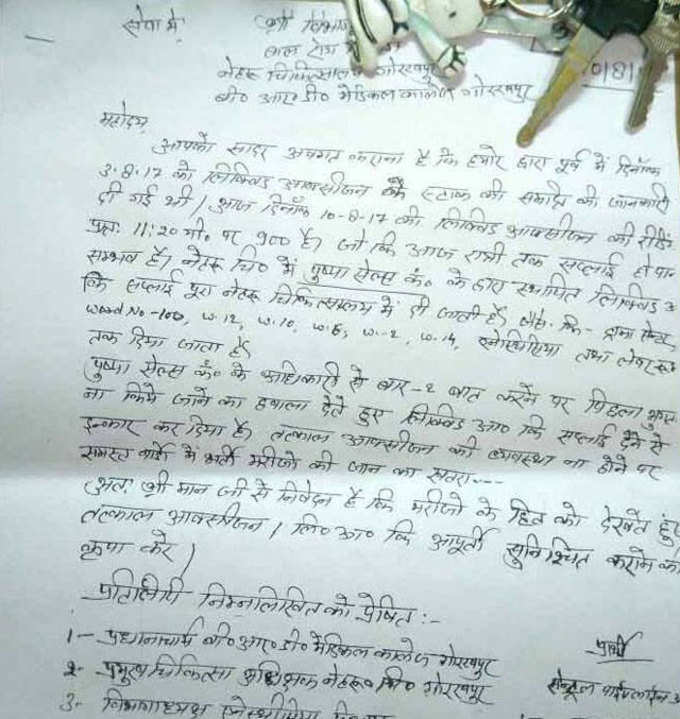 सेवा में,
श्री विभाग
बाल रोग
नेहरू चिकित्सालय गोरखपुर
बी० आर० डी० मेडिकल कालेज गोरखपुर
महोदय,
आपको सादर अवगत कराना है कि हमारे द्वारा पूर्व में दिनाँक
3.8.17 को लिक्विड आक्सीजन के स्टाक की समाप्ति की जानकारी
दी गई थी। आज दिनाँक 10-8-17 की लिक्विड आक्सीजन की रीडिंग
प्रातः 11:20 मी० पर 900 है, जो कि आज रात्री तक सप्लाई हो पाना
सम्भव है। नेहरू चि० में पुष्पा सेल्स कं० के द्वारा स्थापित लिक्विड
कि सप्लाई पूरा नेहरू चिकित्सालय में दी जाती है, जैसे कि- ट्रामा सेन्टर,
ward No -100, w.12, w.10, w.6, w.-2, w.14, एनेस्थिसिया तथा लेबर रूम
तक दिया जाता है,
पुष्पा सेल्स कं० के अधिकारी से बार-2 बात करने पर पिछला
ना किये जाने का हवाला देते हुए लिक्विड आ० कि सप्लाई देने से
इन्कार कर दिया है, तत्काल आक्सीजन की व्यवस्था ना होने पर
समस्त वार्डो में भर्ती मरीजो की जान का खतरा---
अतः श्री मान जी से निवेदन है कि मरीजो के हित को देखते हुए
तत्काल आक्सीजन / लि० आ० कि आपूर्ती सुनिश्चित कराने की
कृपा करे।
प्रतिलिपि निम्नलिखित को प्रेषित:-
1- प्रधानाचार्य बी० आर० डी० मेडिकल कालेज गोरखपुर
प्रार्थी
2- प्रमुख चिकित्सा अधिक्षक नेहरू चि० गोरखपुर
सेन्ट्रल पाईपलाईन
3- विभागाध्यक्ष एनेस्थीसिया